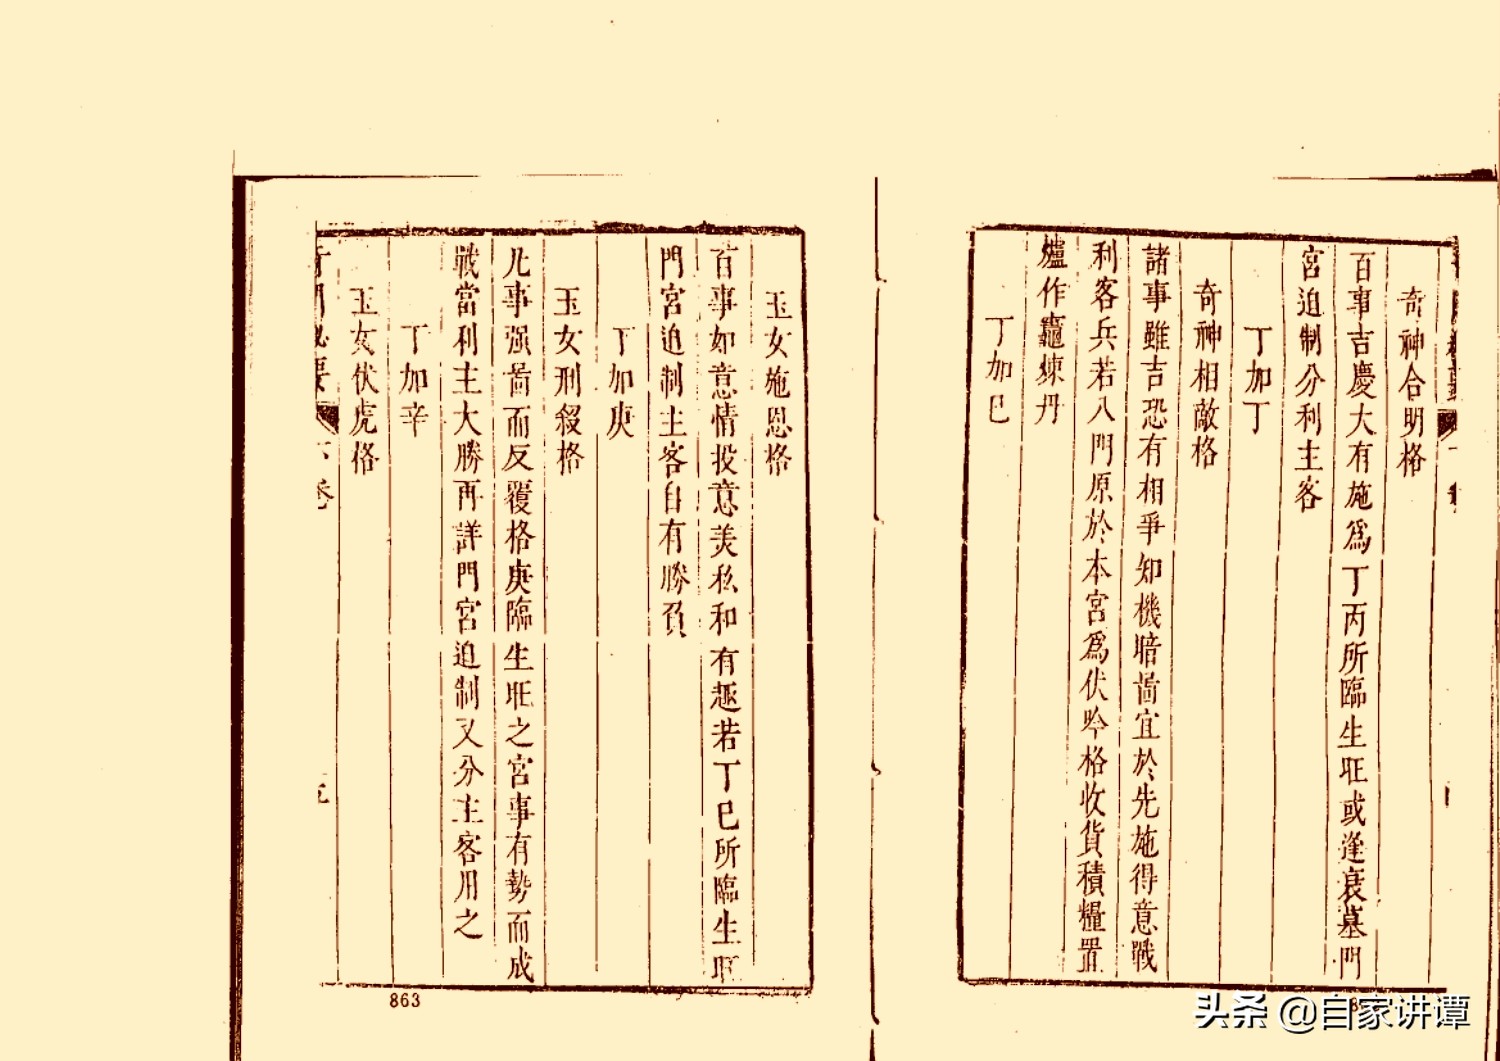 奇神合明格
百事吉慶大有施爲丁丙所臨生旺或逢衰墓門
宮迫制分利主客
丁加丁
奇神相敵格
諸事雖吉恐有相爭知機暗啚宜於先施得意戰
利客兵若八門原於本宮爲伏吟格收貨積糧置
爐作竈煉丹
丁加巳
玉女施恩格
百事如意情投意美私和有趣若丁巳所臨生旺
門宮迫制主客自有勝負
丁加庚
玉女刑殺格
凡事强啚而反覆格庚臨生旺之宮事有勢而成
戰當利主大勝再詳門宮迫制又分主客用之
丁加辛
玉女伏虎格
奇門秘要 下卷
863
头条 @自家讲谭